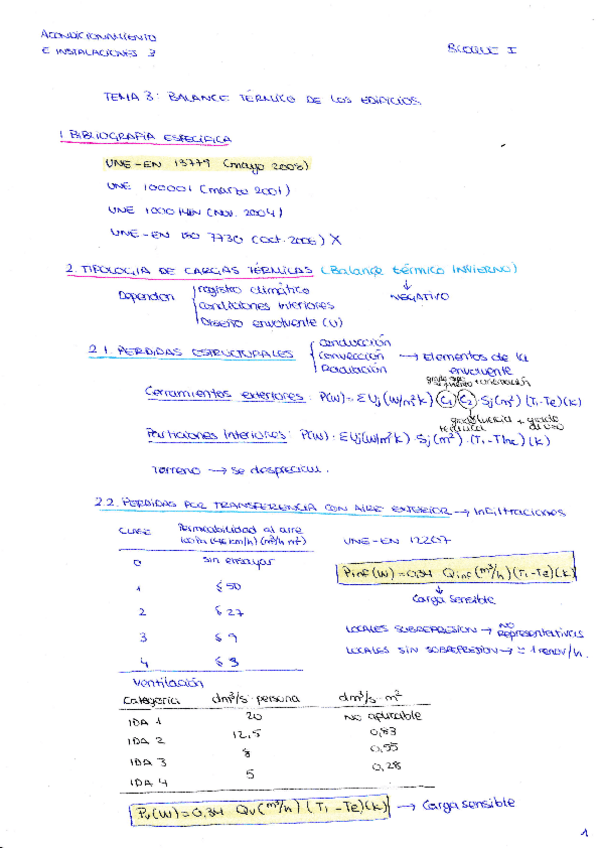 ACONDICIONAMIENTO
E INSTALACIONES 3
BLOQUE I
TEMA 3: BALANCE TÉRMICO DE LOS EDIFICIOS
1. BIBLIOGRAFÍA ESPECÍFICA
UNE-EN 13779 (mayo 2008)
UNE 100001 (marzo 2001)
UNE 100014IN (NOV. 2004)
UNE-EN ISO 7730 (Oct. 2006) X
2. TIPOLOGÍA DE CARGAS TÉRMICAS (Balance térmico INVIERNO)
↓
NEGATIVO
Dependen { registro climático
condiciones interiores
Diseño envolvente (U)
2.1. PERDIDAS ESTRUCTURALES { conducción
convección → Elementos de la
Radiación envolvente
+ orientación
Cerramientos exteriores: P(W) = ΣUj (W/m²K) (C1)(C2) · Sj (m²) (Ti-Te)(K)
Particiones interiores: P(W) · ΣUj (W/m²K) · Sj (m²) · (Ti-Tlnc) (K)
Terreno → se desprecian.
2.2. PERDIDAS POR TRANSFERENCIA CON AIRE EXTERIOR → Infiltraciones
CLASE Permeabilidad al aire
(m³/h m²)
UNE-EN 12207
0 sin ensayar
1 ≤ 50
2 ≤ 27
3 ≤ 9
4 ≤ 3
Pinf (W) = 0,34 Qinf (m³/h) (Ti-Te)(K)
↓
Carga sensible
LOCALES SOBREPRESION → NO representativas
LOCALES SIN SOBREPRESION → ≈ 1 renov/h.
Ventilación
Categoría dm³/s · persona dm³/s · m²
IDA 1 20 NO aplicable
IDA 2 12,5 0,83
IDA 3 8 0,55
IDA 4 5 0,28
Pv (W) = 0,34 Qv (m³/h) (Ti - Te)(K) → Carga sensible
1